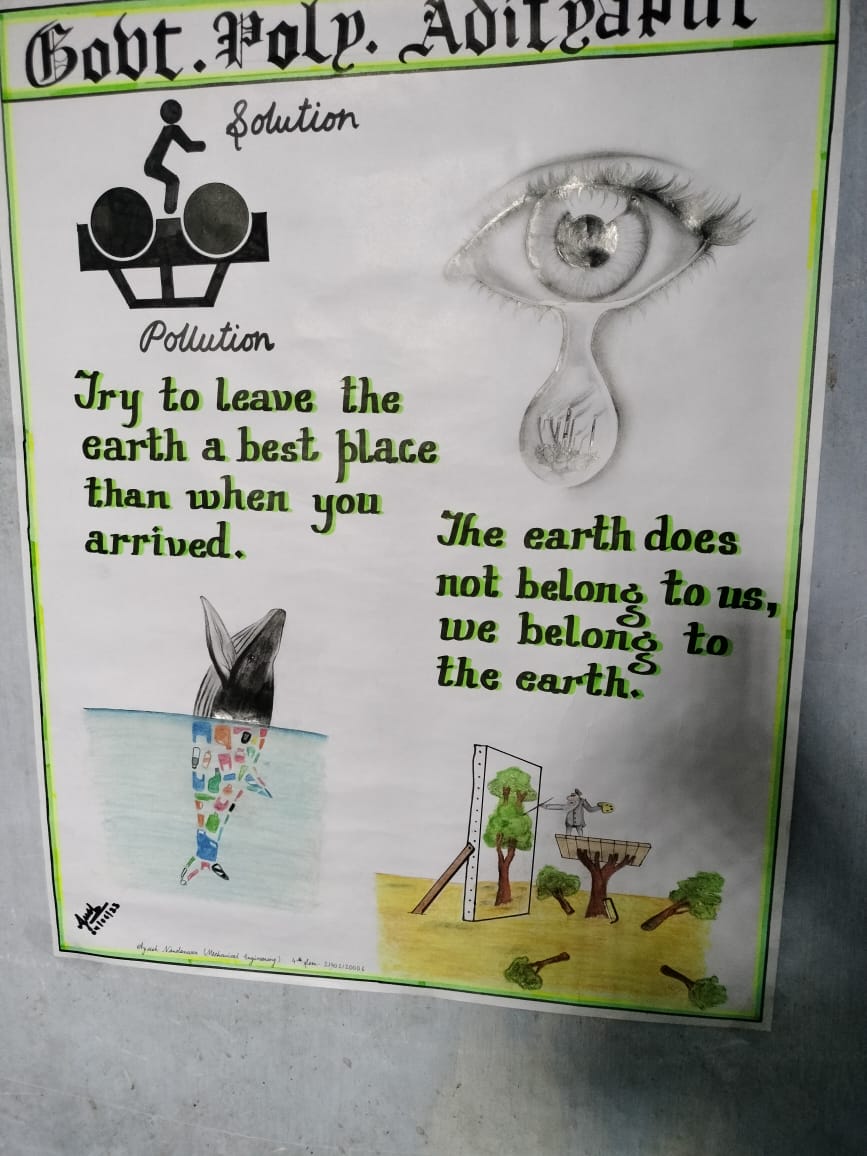 Govt. Poly. Adityapur
Solution
Pollution
Try to leave the
earth a best place
than when you
arrived.
The earth does
not belong to us,
we belong to
the earth.
(Mechanical Engineering) 4th Sem